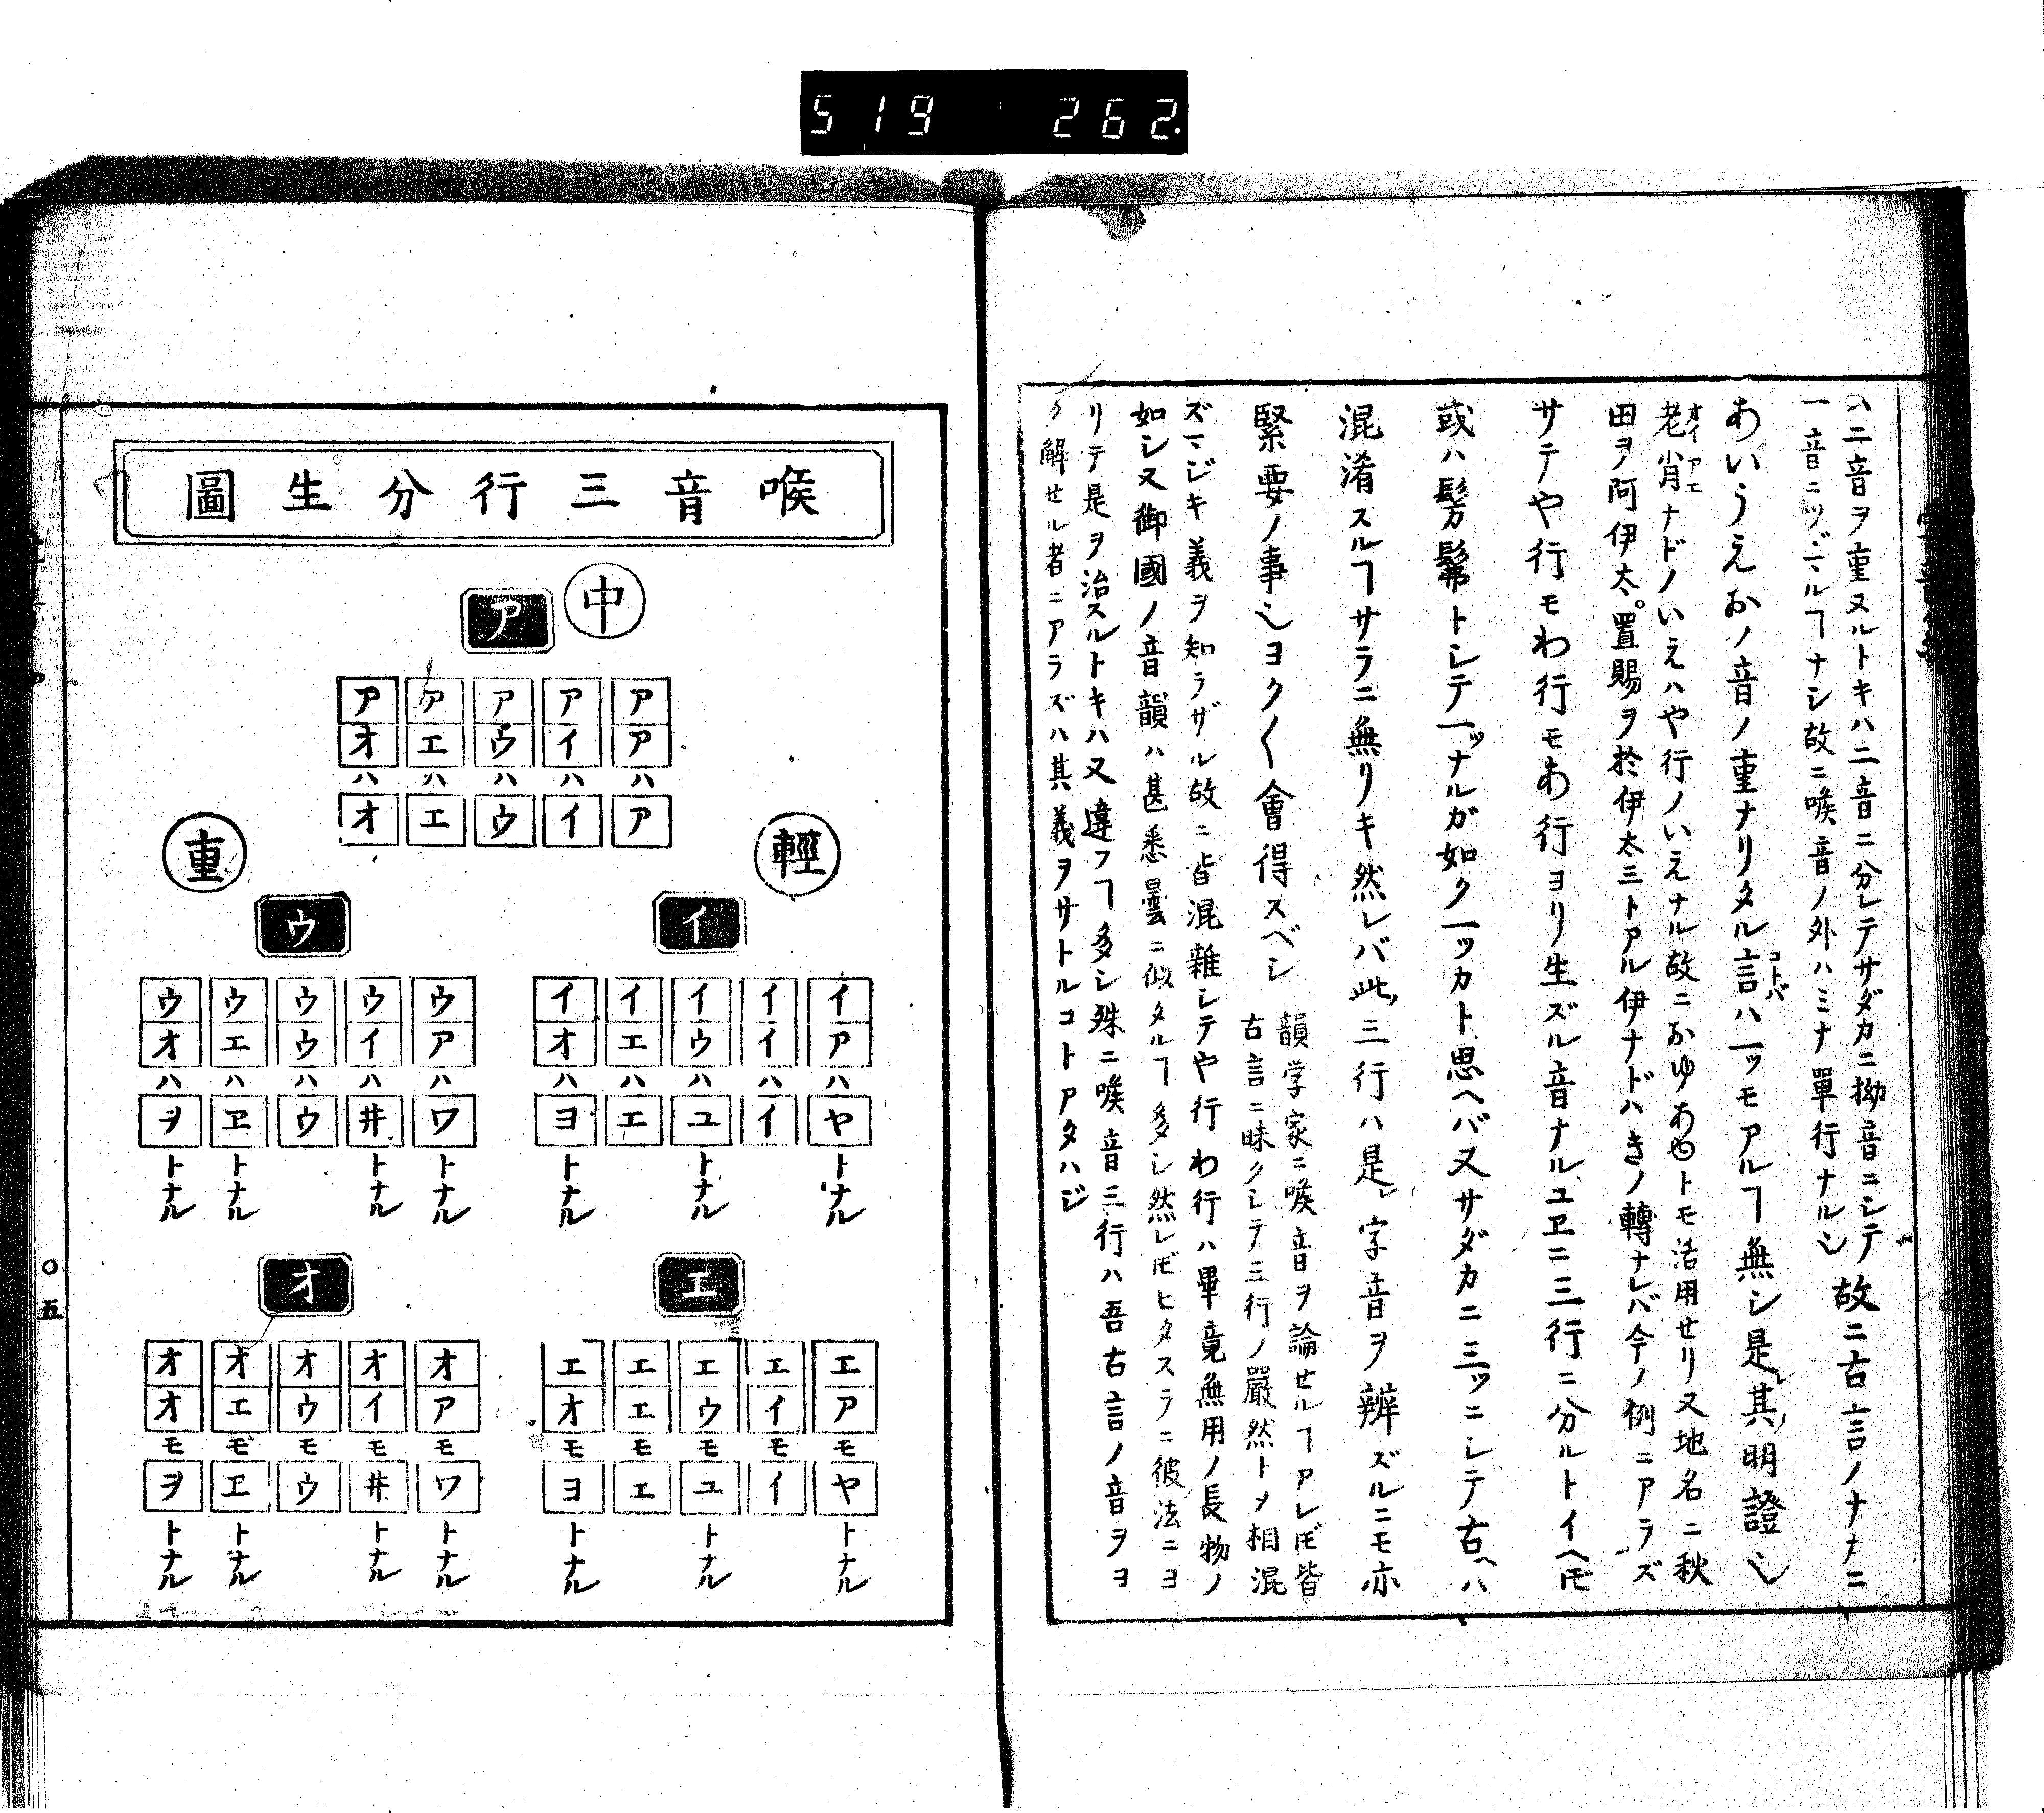 519 262.
ハ二音ヲ重ヌルトキハ二音ニ分レテサダカニ拗音ニシテ故ニ古言ノナナニ
一音ニツヾマルヿナシ故ニ喉音ノ外ハミナ單行ナルシ
あいうえおノ音ノ重ナリタル言ハ一ッモアルヿ無シ是其明證シ
コトバ
老肖ナドノいえハや行ノいえナル故ニおゆあゆトモ活用セリ又地名ニ秋
オイ アエ
田ヲ阿伊太。置賜ヲ於伊太三トアル伊ナドハきノ轉ナレバ今ノ例ニアラズ
サテや行モわ行モあ行ヨリ生ズル音ナルユヱニ三行ニ分ルトイヘ𪜈
或ハ髣髴トシテ一ッナルガ如ク一ッカト思ヘバ又サダカニ三ッニシテ古ハ
混淆スルヿサラニ無リキ然レバ此三行ハ是字音ヲ辨ズルニモ亦
緊要ノ事シヨク〱會得スベシ
韻学家ニ喉音ヲ論セルヿアレ𪜈皆
古言ニ昧クシテ三行ノ嚴然トメ相混
ズマジキ義ヲ知ラザル故ニ皆混雜シテや行わ行ハ畢竟無用ノ長物ノ
如シ又御國ノ音韻ハ甚悉曇ニ似タルヿ多シ然レ𪜈ヒタスラニ彼法ニヨ
リテ是ヲ治スルトキハ又違フヿ多シ殊ニ喉音三行ハ吾古言ノ音ヲヨ
ク解セル者ニアラズハ其義ヲサトルコトアタハジ
喉音三行分生圖
中
ア
アア ハ ア
アイ ハ イ
アウ ハ ウ
アエ ハ エ
アオ ハ オ
輕
イ
イア ハ ヤ トナル
イイ ハ イ
イウ ハ ユ トナル
イエ ハ エ
イオ ハ ヨ トナル
重
ウ
ウア ハ ワ トナル
ウイ ハ 井 トナル
ウウ ハ ウ
ウエ ハ ヱ トナル
ウオ ハ ヲ トナル
エ
エア モ ヤ トナル
エイ モ イ
エウ モ ユ トナル
エエ モ エ
エオ モ ヨ トナル
オ
オア モ ワ トナル
オイ モ 井 トナル
オウ モ ウ
オエ モ ヱ トナル
オオ モ ヲ トナル
○五